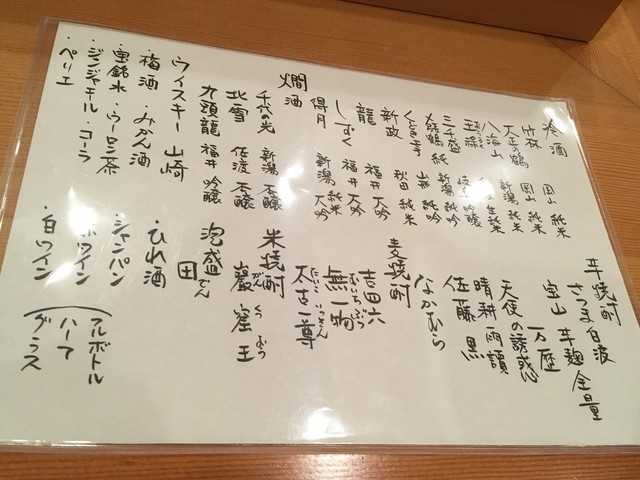 冷酒
竹林 岡山 純米
大正の鶴 岡山 純米
八海山 新潟 純米
三千盛
〆張鶴 純 新潟 純吟
くどき上手 山形 純吟
新政 秋田 純米
龍 福井 大吟
しずく 福井 大吟
得月 新潟 大吟
燗酒
千代の光 新潟 本醸
北雪 佐渡 本醸
九頭龍 福井 吟醸
ウィスキー 山崎
・梅酒 ・みかん酒
・宝銘水 ・ウーロン茶
・ジンジャエール ・コーラ
・ペリエ
芋焼酎
さつま白波
宝山 芋麹全量
万歴
天使の誘惑
晴耕雨読
佐藤 黒
なかむら
麦焼酎
吉四六
無一物 むいちぶつ
太古一尊
米焼酎
巌窟王 がんくつおう
泡盛
・ひれ酒
・シャンパン
・白ワイン
フルボトル
ハーフ
グラス